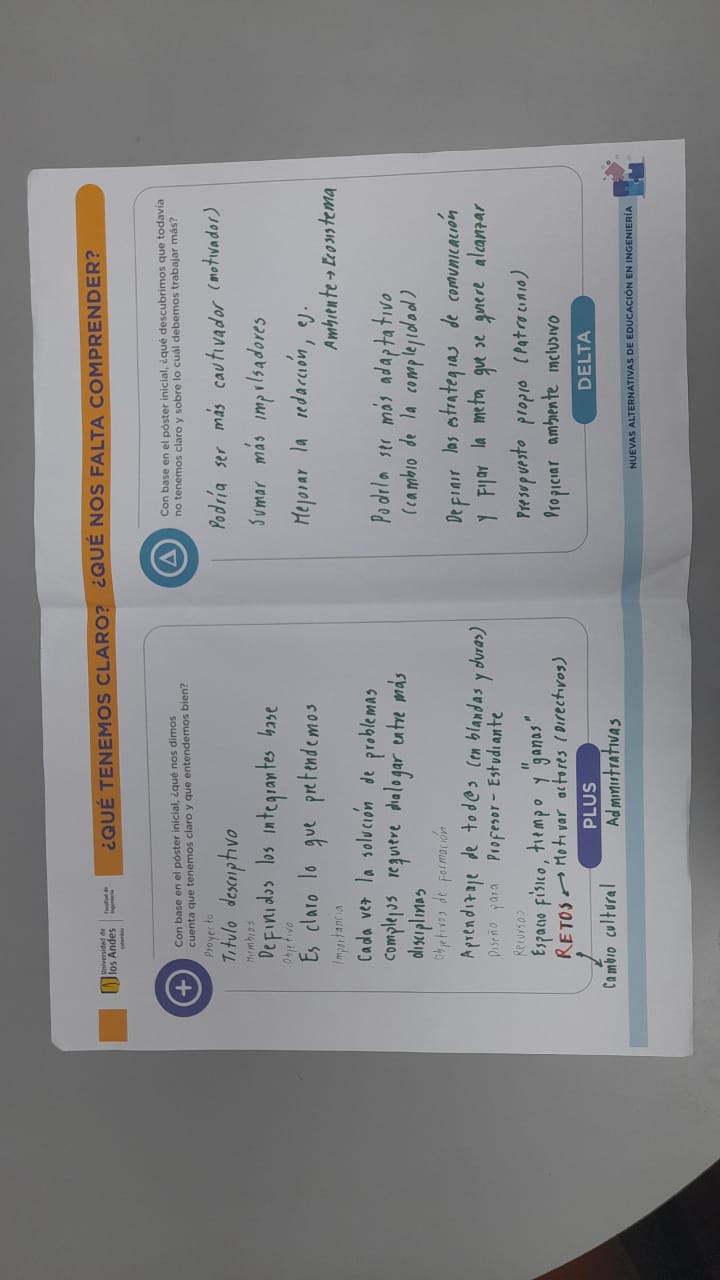 Universidad de
los Andes
Colombia
Facultad de
Ingeniería
¿QUÉ TENEMOS CLARO? ¿QUÉ NOS FALTA COMPRENDER?
Con base en el póster inicial, ¿qué nos dimos
cuenta que tenemos claro y que entendemos bien?
Proyecto
Título descriptivo
Miembros
Definidos los integrantes base
Objetivo
Es claro lo que pretendemos
Importancia
Cada vez la solución de problemas
complejos requiere dialogar entre más
disciplinas
Objetivos de Formación
Aprendizaje de tod@s (en blandas y duras)
Diseño para Profesor - Estudiante
Recursos
Espacio Físico, tiempo y "ganas"
RETOS → Motivar actores (Directivos)
PLUS
Cambio cultural Administrativas
Con base en el póster inicial, ¿qué descubrimos que todavía
no tenemos claro y sobre lo cuál debemos trabajar más?
Podría ser más cautivador (motivador)
Sumar más impulsadores
Mejorar la redacción, ej.
Ambiente → Ecosistema
Podría ser más adaptativo
(cambio de la complejidad)
Definir las estrategias de comunicación
y Fijar la meta que se quiere alcanzar
Presupuesto propio (Patrocinio)
Propiciar ambiente inclusivo
DELTA
NUEVAS ALTERNATIVAS DE EDUCACIÓN EN INGENIERÍA